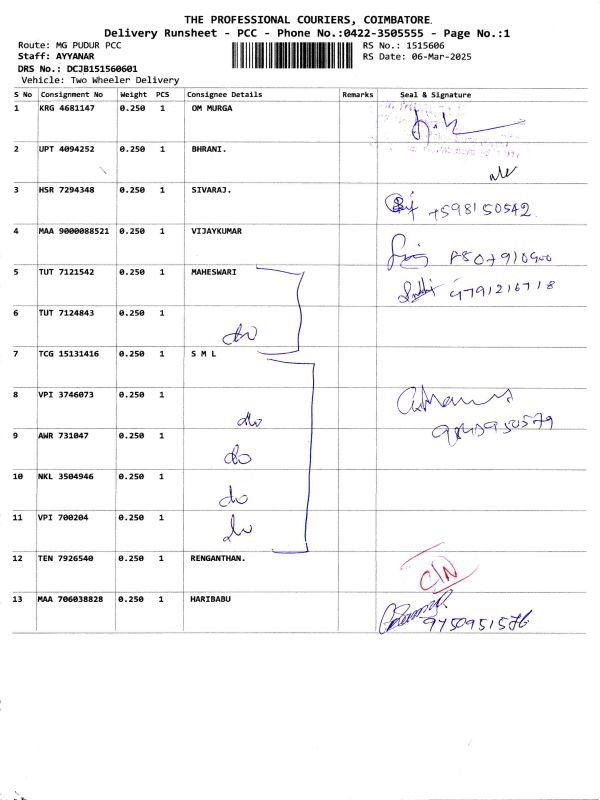 THE PROFESSIONAL COURIERS, COIMBATORE.
Delivery Runsheet - PCC - Phone No.:0422-3505555 - Page No.:1
Route: MG PUDUR PCC RS No.: 1515606
Staff: AYYANAR RS Date: 06-Mar-2025
DRS No.: DCJB151560601
Vehicle: Two Wheeler Delivery
S No Consignment No Weight PCS Consignee Details Remarks Seal & Signature
1 KRG 4681147 0.250 1 OM MURGA
2 UPT 4094252 0.250 1 BHRANI.
3 HSR 7294348 0.250 1 SIVARAJ.
4 MAA 9000088521 0.250 1 VIJAYKUMAR
5 TUT 7121542 0.250 1 MAHESWARI
6 TUT 7124843 0.250 1 do
7 TCG 15131416 0.250 1 S M L
8 VPI 3746073 0.250 1 do
9 AWR 731047 0.250 1 do
10 NKL 3504946 0.250 1 do
11 VPI 700204 0.250 1 do
12 TEN 7926540 0.250 1 RENGANTHAN. C/N
13 MAA 706038828 0.250 1 HARIBABU 9750951576